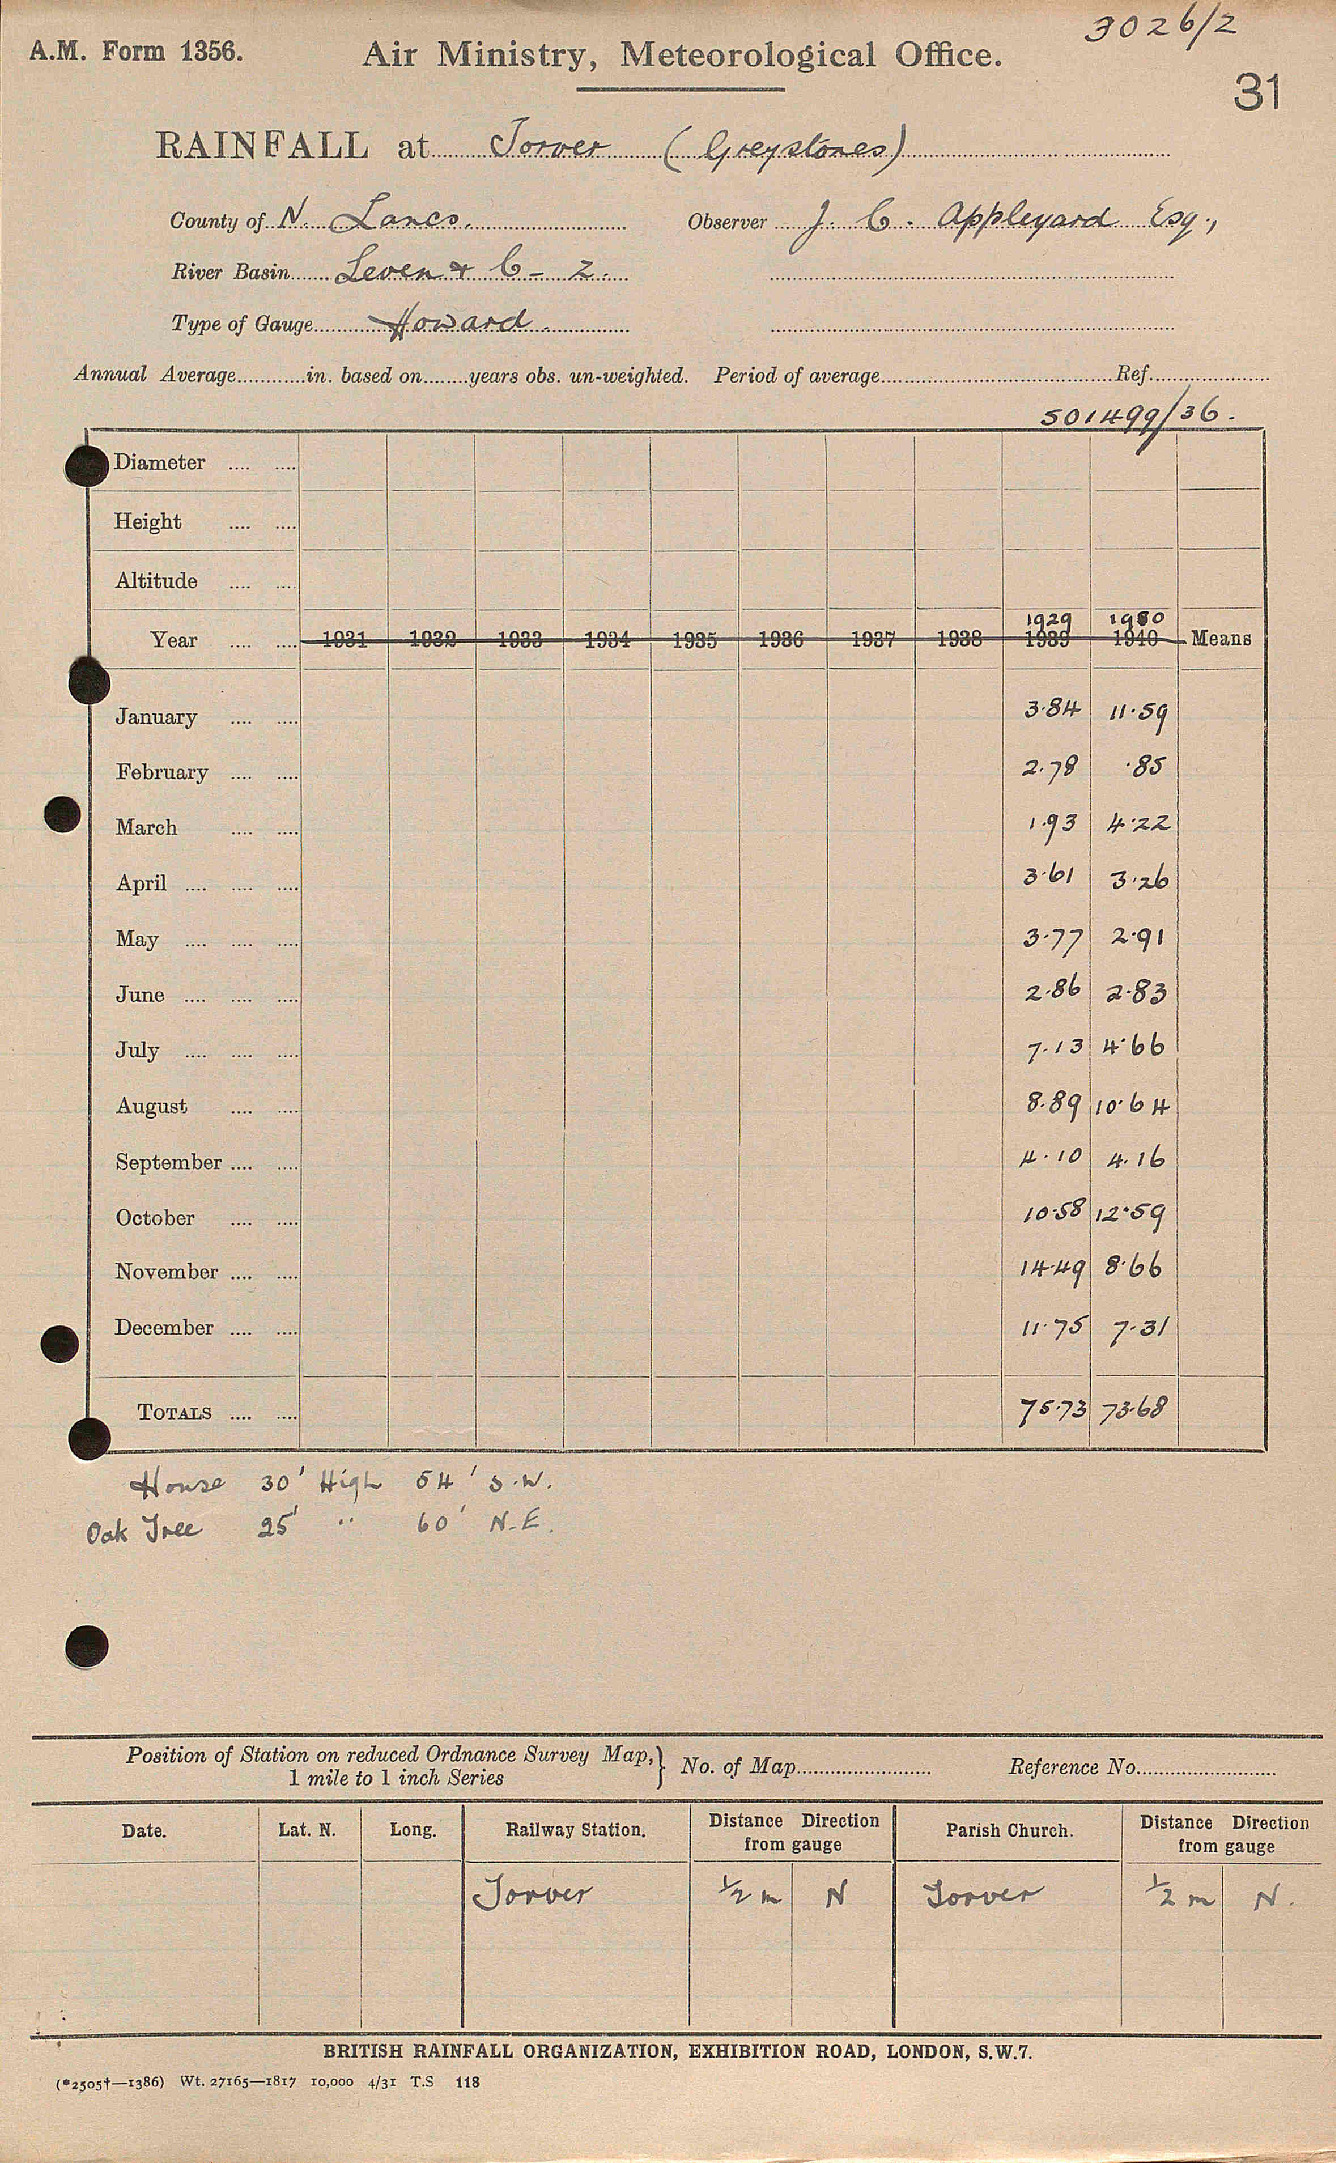 3026/2
A.M. Form 1356.
Air Ministry, Meteorological Office.
31
RAINFALL at Torver (Greystones)
County of N. Lancs. Observer J. C. Appleyard Esq.,
River Basin Leven & C - Z.
Type of Gauge Howard.
Annual Average............in. based on........years obs. un-weighted. Period of average........................................Ref.....................
501499/36.
Diameter .... ....
Height .... ....
Altitude .... ....
1929 1930
Year .... .... 1931 1932 1933 1934 1935 1936 1937 1938 1939 1940 Means
January .... .... 3.84 11.59
February .... .... 2.78 .85
March .... .... 1.93 4.22
April .... .... .... 3.61 3.26
May .... .... .... 3.77 2.91
June .... .... .... 2.86 2.83
July .... .... .... 7.13 4.66
August .... .... 8.89 10.64
September .... .... 4.10 4.16
October .... .... 10.58 12.59
November .... .... 14.49 8.66
December .... .... 11.75 7.31
TOTALS .... .... 75.73 73.68
House 30' High 54' S.W.
Oak Tree 25' " 60' N.E.
Position of Station on reduced Ordnance Survey Map, } No. of Map........................ Reference No.........................
1 mile to 1 inch Series
Date. Lat. N. Long. Railway Station. Distance Direction from gauge Parish Church. Distance Direction from gauge
Torver 1/2 m N Torver 1/2 m N.
BRITISH RAINFALL ORGANIZATION, EXHIBITION ROAD, LONDON, S.W.7.
(*2505†—1386) Wt. 27165—1817 10,000 4/31 T.S 118